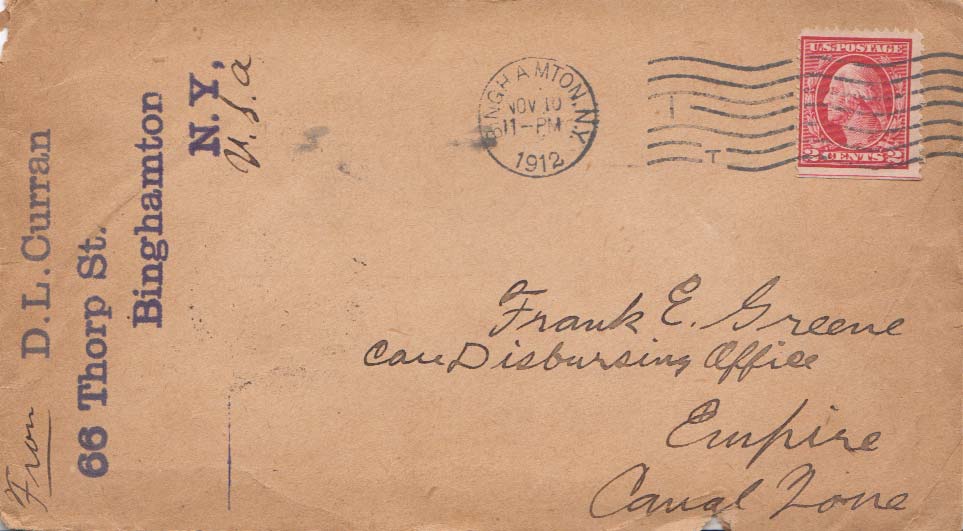 From D. L. Curran
66 Thorp St.
Binghamton
N.Y,
U.S.a
BINGHAMTON, N.Y.
NOV 10
11-PM
1912
T
U.S. POSTAGE
2 CENTS 2
Frank E. Greene
Care Disbursing Office
Empire
Canal Zone